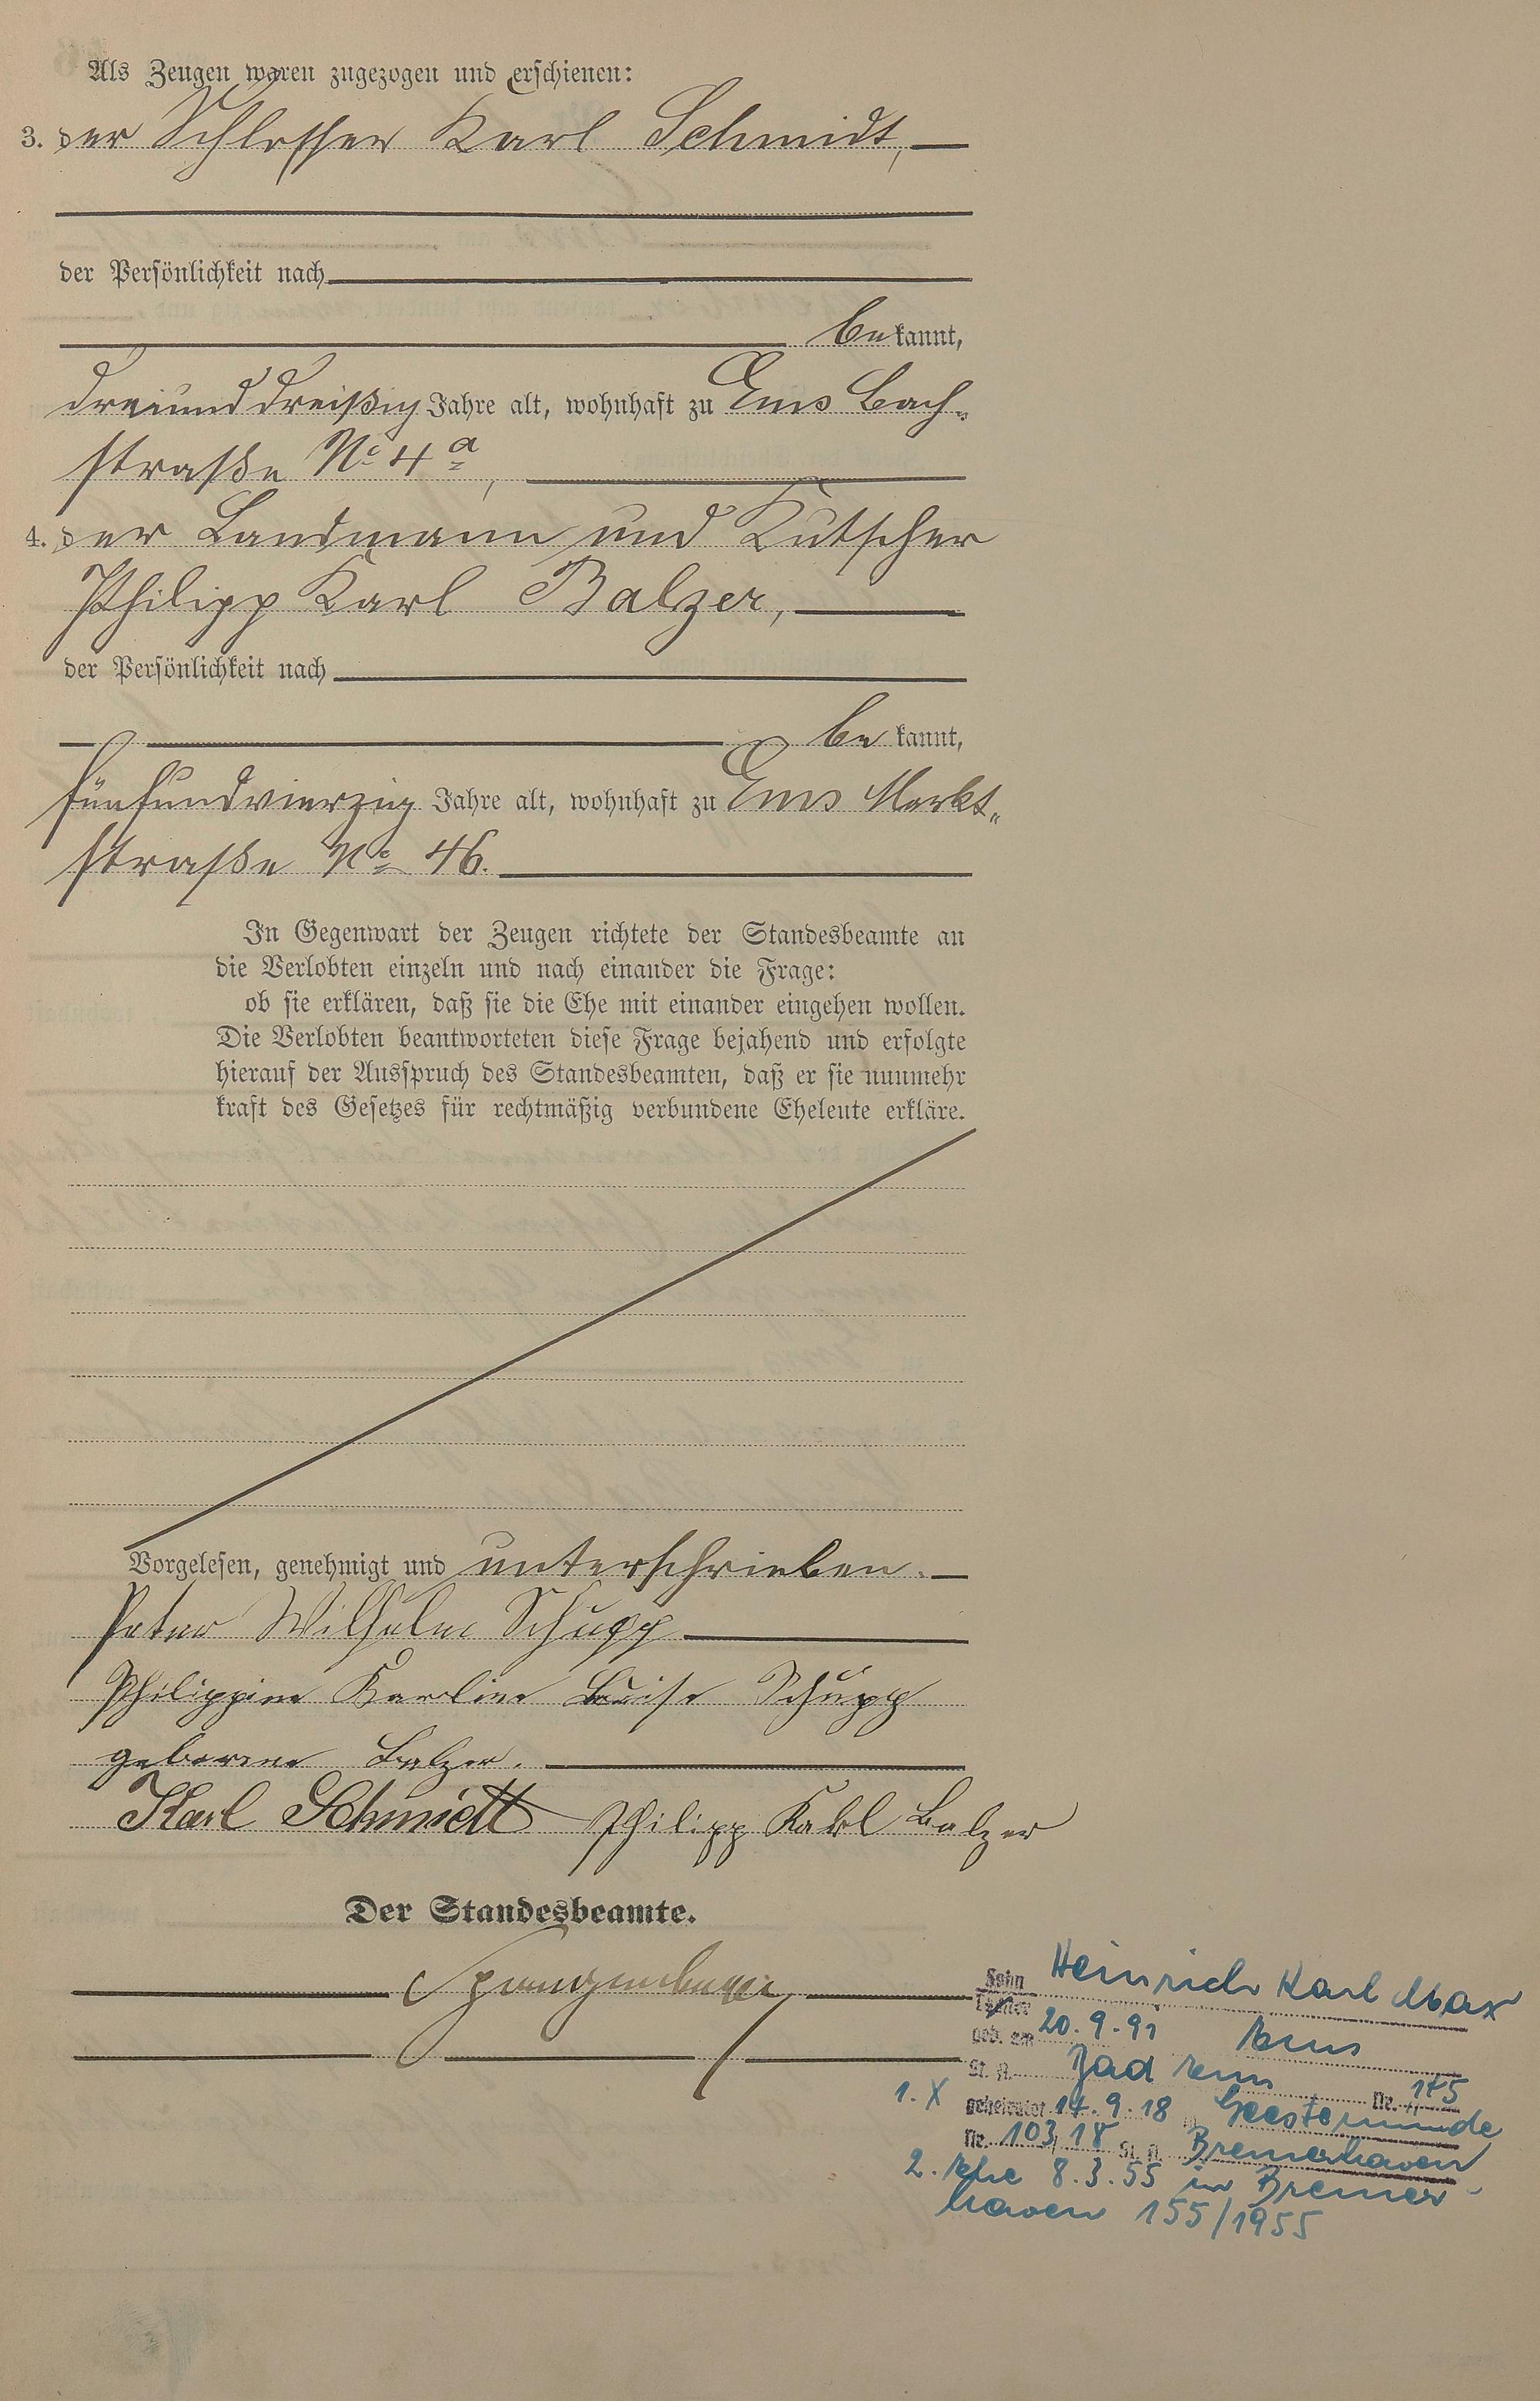 Als Zeugen waren zugezogen und erschienen:
3. der Schlosser Karl Schmidt,
der Persönlichkeit nach
bekannt,
dreiunddreißig Jahre alt, wohnhaft zu Ems Bach-
straße No 4a,
4. der Landmann und Kutscher
Philipp Karl Balzer,
der Persönlichkeit nach
bekannt,
fünfundvierzig Jahre alt, wohnhaft zu Ems Markt-
straße No 46.
In Gegenwart der Zeugen richtete der Standesbeamte an
die Verlobten einzeln und nach einander die Frage:
ob sie erklären, daß sie die Ehe mit einander eingehen wollen.
Die Verlobten beantworteten diese Frage bejahend und erfolgte
hierauf der Ausspruch des Standesbeamten, daß er sie nunmehr
kraft des Gesetzes für rechtmäßig verbundene Eheleute erkläre.
Vorgelesen, genehmigt und unterschrieben.
Peter Wilhelm Schupp
Philippine Karoline Luise Schupp
geborene Balzer.
Karl Schmidt Philipp Karl Balzer
Der Standesbeamte.
Spangenberg
Sohn Heinrich Karl Max
Tochter
geb. am 20.9.91 Ems
St. A. Bad Ems Nr. 145
1. X geheiratet 14.9.18 in Geestemünde
Nr. 103/18 St. A. Bremerhaven
2. Ehe 8.3.55 in Bremer-
haven 155/1955